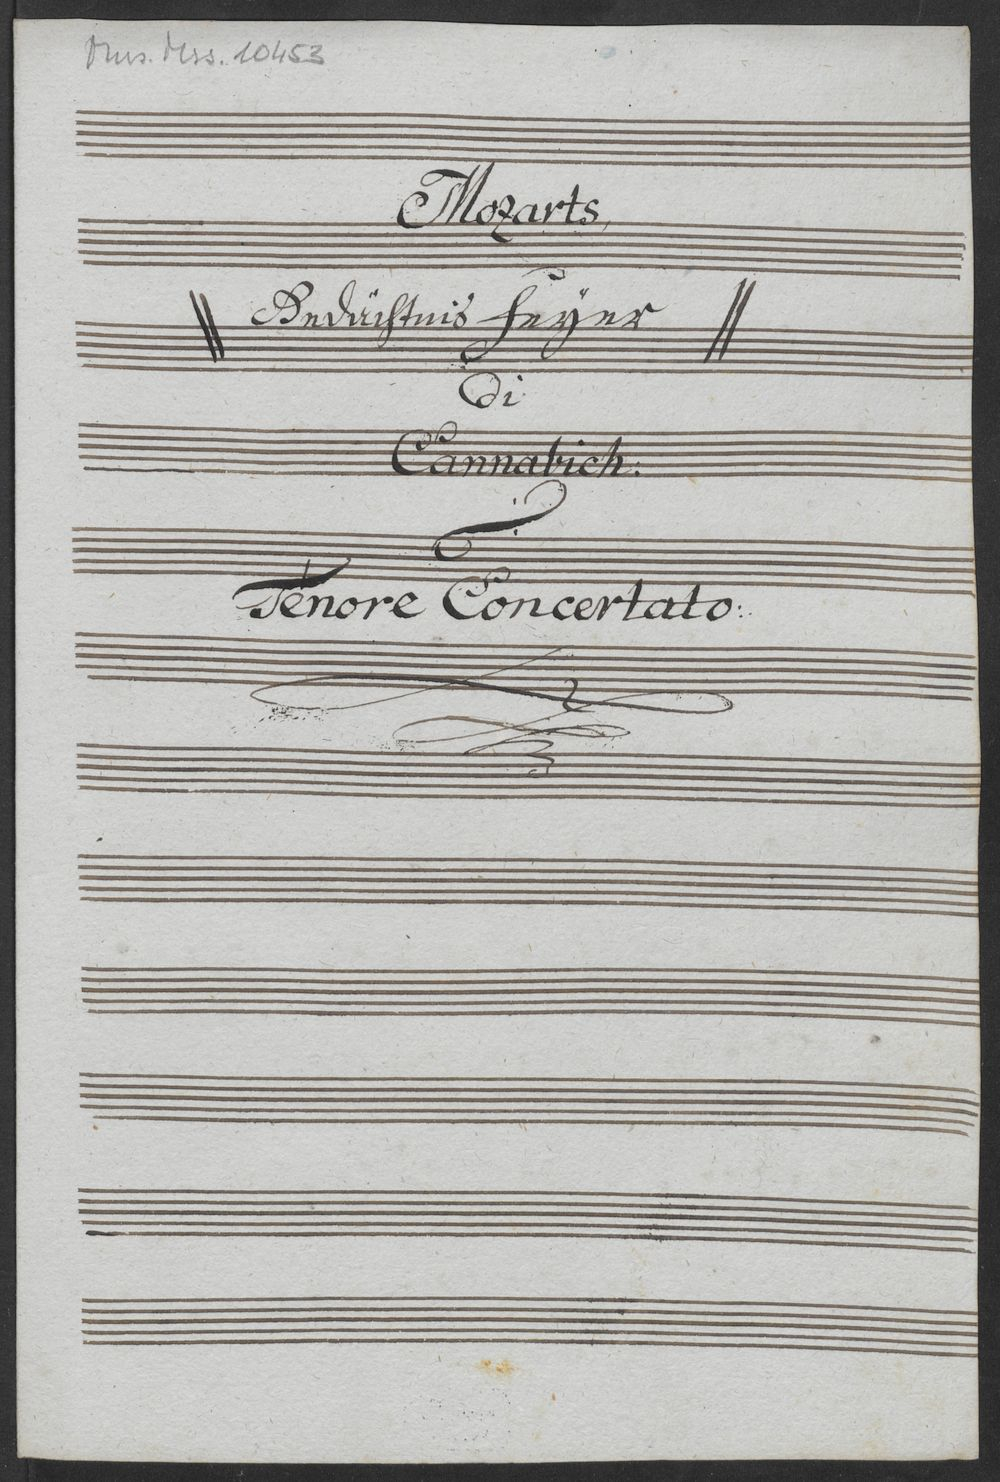 Mus. Mss. 10453
Mozarts
Gedächtnis Feÿer
Di
Cannabich:
Tenore Concertato: